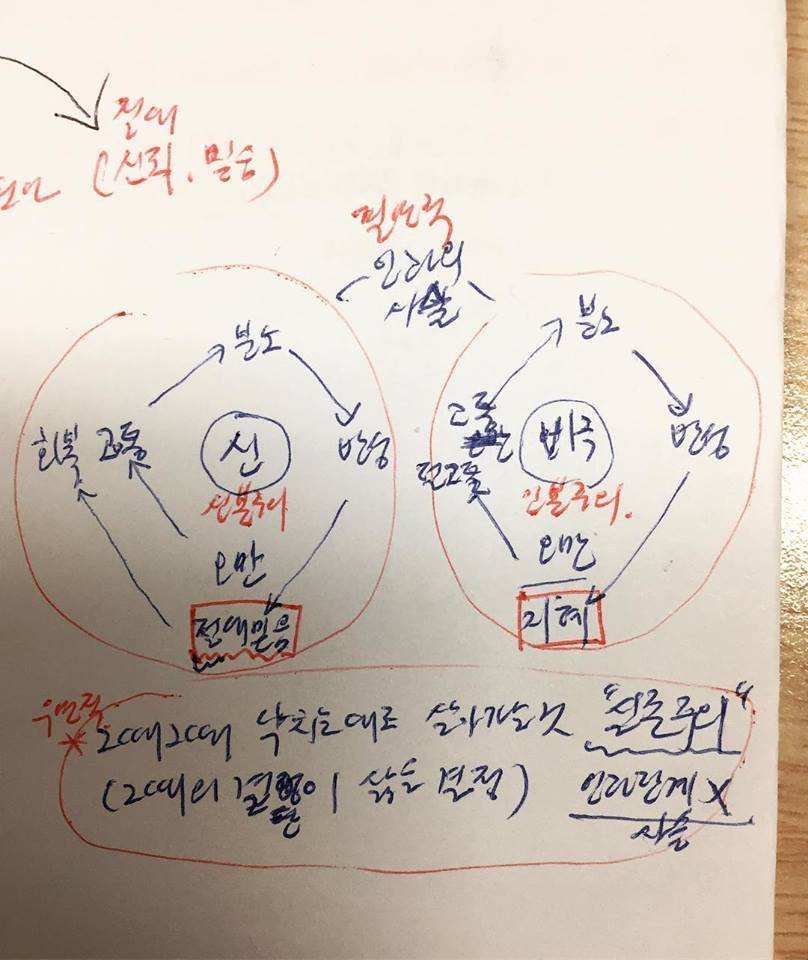 절대
(신뢰, 믿음)
필연적
인과의
사슬
분노
회복 고통
신
반성
신본주의
오만
절대믿음
분노
고통
비극
반성
인본주의.
오만
지혜
우연적
* 그때그때 닥치는대로 살아가는것 "실존주의"
(그때의 결단이 삶을 결정) 인과관계 X
사슬